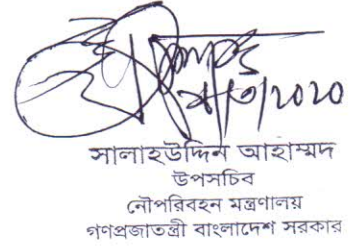 সালাহউদ্দিন আহাম্মদ
উপসচিব
নৌপরিবহন মন্ত্রণালয়
গণপ্রজাতন্ত্রী বাংলাদেশ সরকার